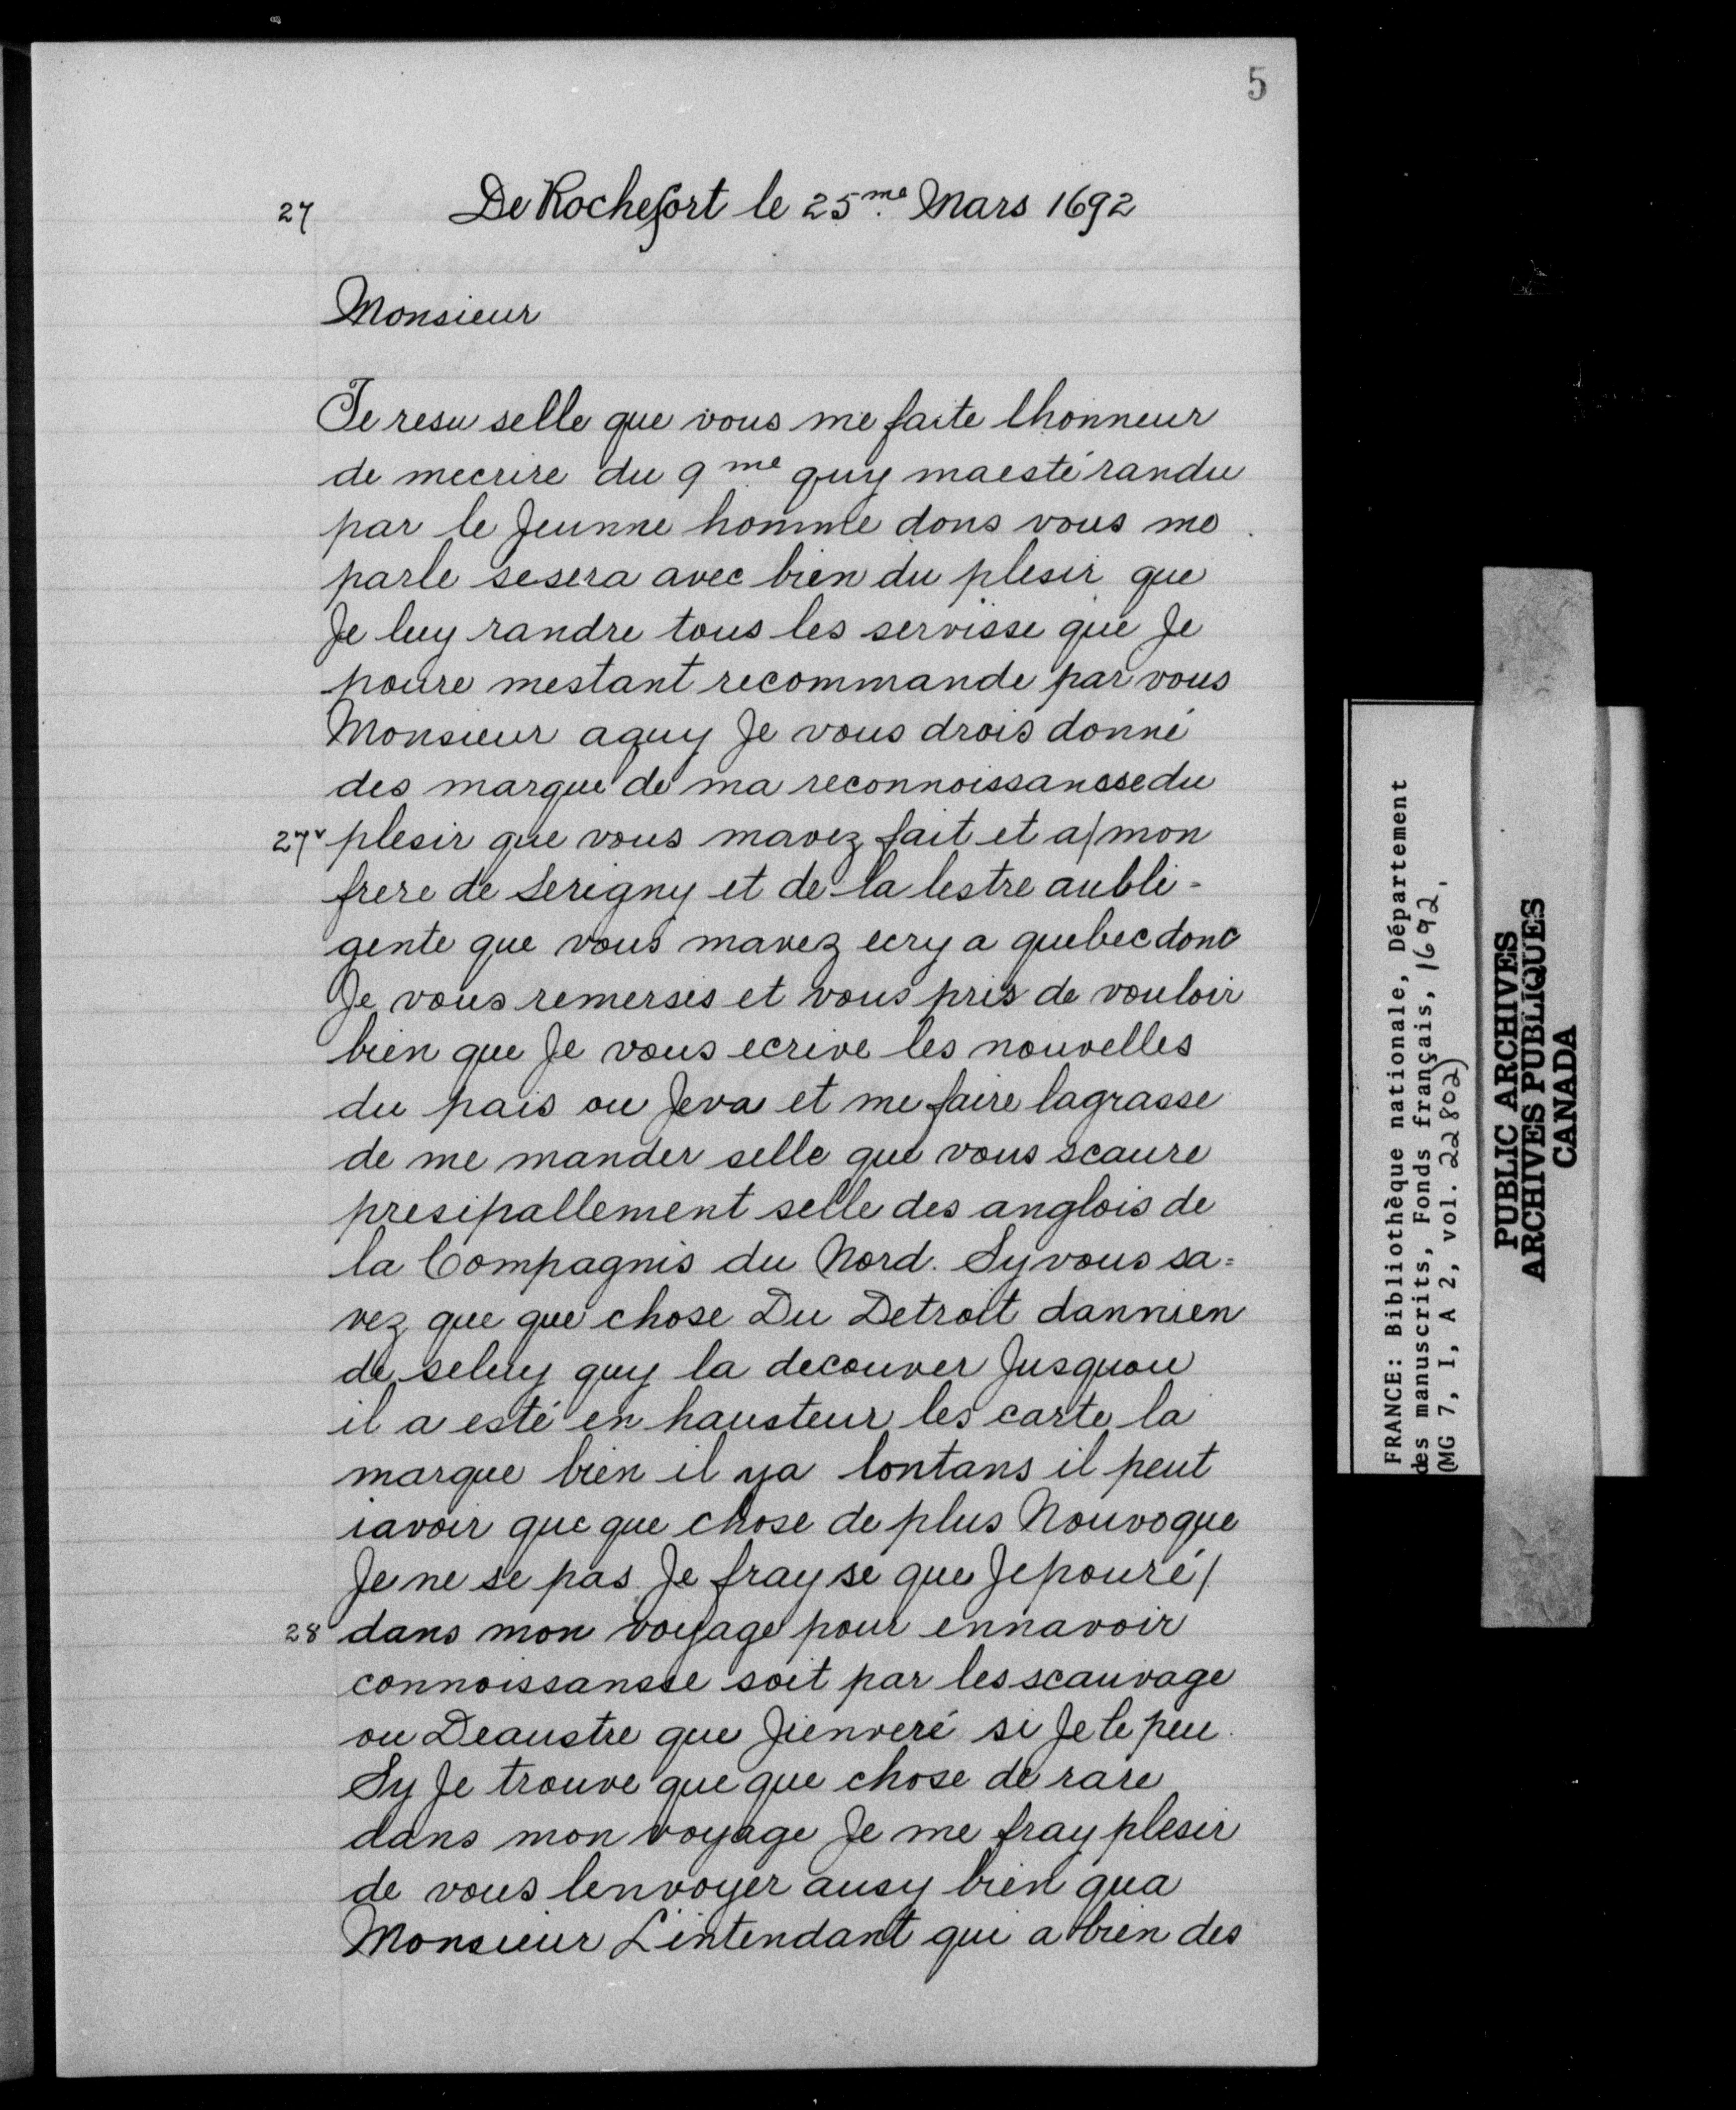 5
27 De Rochefort le 25.me Mars 1692
Monsieur
Je resu selle que vous me faite lhonneur
de mecrire du 9me quy maesté randu
par le Jeunne homme dons vous me
parle sesera avec bien du plesir que
Je luy randre tous les servisse que Je
poure mestant recommande par vous
Monsieur aquy Je vous drois donné
des marque de ma reconnoissansse du
27v plesir que vous mavez fait et a/mon
frere de Serigny et de la lestre aubli-
gente que vous mavez ecry a quebec donc
Je vous remersis et vous pris de vouloir
bien que Je vous ecrive les nouvelles
du pais ou Jeva et me faire lagrasse
de me mander selle que vous scaure
presipallement selle des anglois de
la Compagnis du Nord. Sy vous sa=
vez que que chose Du Detroit dannien
de seluy quy la decouver Jusquou
il a esté en hausteur les carte la
marque bien il ya lontans il peut
iavoir que que chose de plus Nouvoque
Je ne se pas Je fray se que Je pouré/
28 dans mon voyage pour ennavoir
connoissansse soit par les scauvage
ou Deaustre que Jienveré si Je le peu.
Sy Je trouve que que chose de rare
dans mon voyage Je me fray plesir
de vous lenvoyer ausy bien qua
Monsieur L'intendant qui a bien des
FRANCE: Bibliothèque nationale, Département
des manuscrits, Fonds français, 1692,
(MG 7, I, A 2, vol. 22802)
PUBLIC ARCHIVES
ARCHIVES PUBLIQUES
CANADA